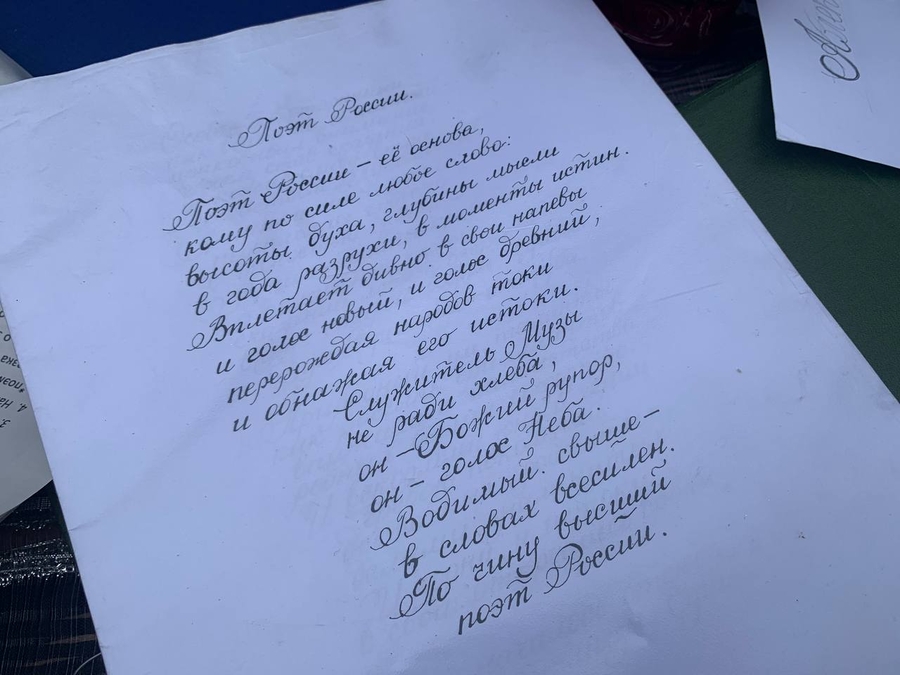 Поэт России.
Поэт России – её основа,
кому по силе любое слово:
высоты духа, глубины мысли
в года разрухи, в моменты истин.
Вплетает дивно в свои напевы
и голос новый, и голос древний,
перерождая народов токи
и обнажая его истоки.
Служитель Музы
не ради хлеба,
он – Божий рупор,
он – голос Неба.
Водимый свыше –
в словах всесилен.
По чину высший
поэт России.